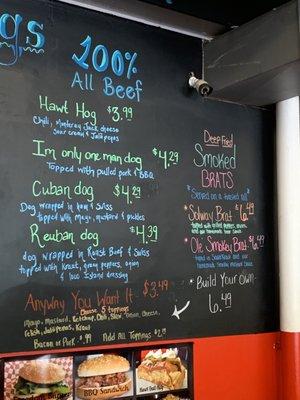 gs
100%
All Beef
Hawt Hog $3.99
Chili, Monterey Jack cheese
sour cream & Jalapeños
Im only one man dog $4.29
Topped with pulled pork & BBQ
Cuban dog $4.29
Dog wrapped in Ham & Swiss
topped with Mayo, mustard & pickles
Reuban dog $4.39
dog wrapped in Roast Beef & Swiss
topped with Kraut, onion
& 1000 Island dressing
Anyway You Want It $3.49
Choose 5 toppings
Mayo, Mustard, Ketchup, Slaw, Onion, Cheese,
relish, Jalapenos, Kraut
Bacon or Pork $.99 Add All Toppings $2.19
Deep Fried
Smoked
BRATS
"Served on a toasted roll"
Solway Brat $6.49
Ole Smokey Brat $6.49
Build Your Own
6.49
BBQ Sandwich